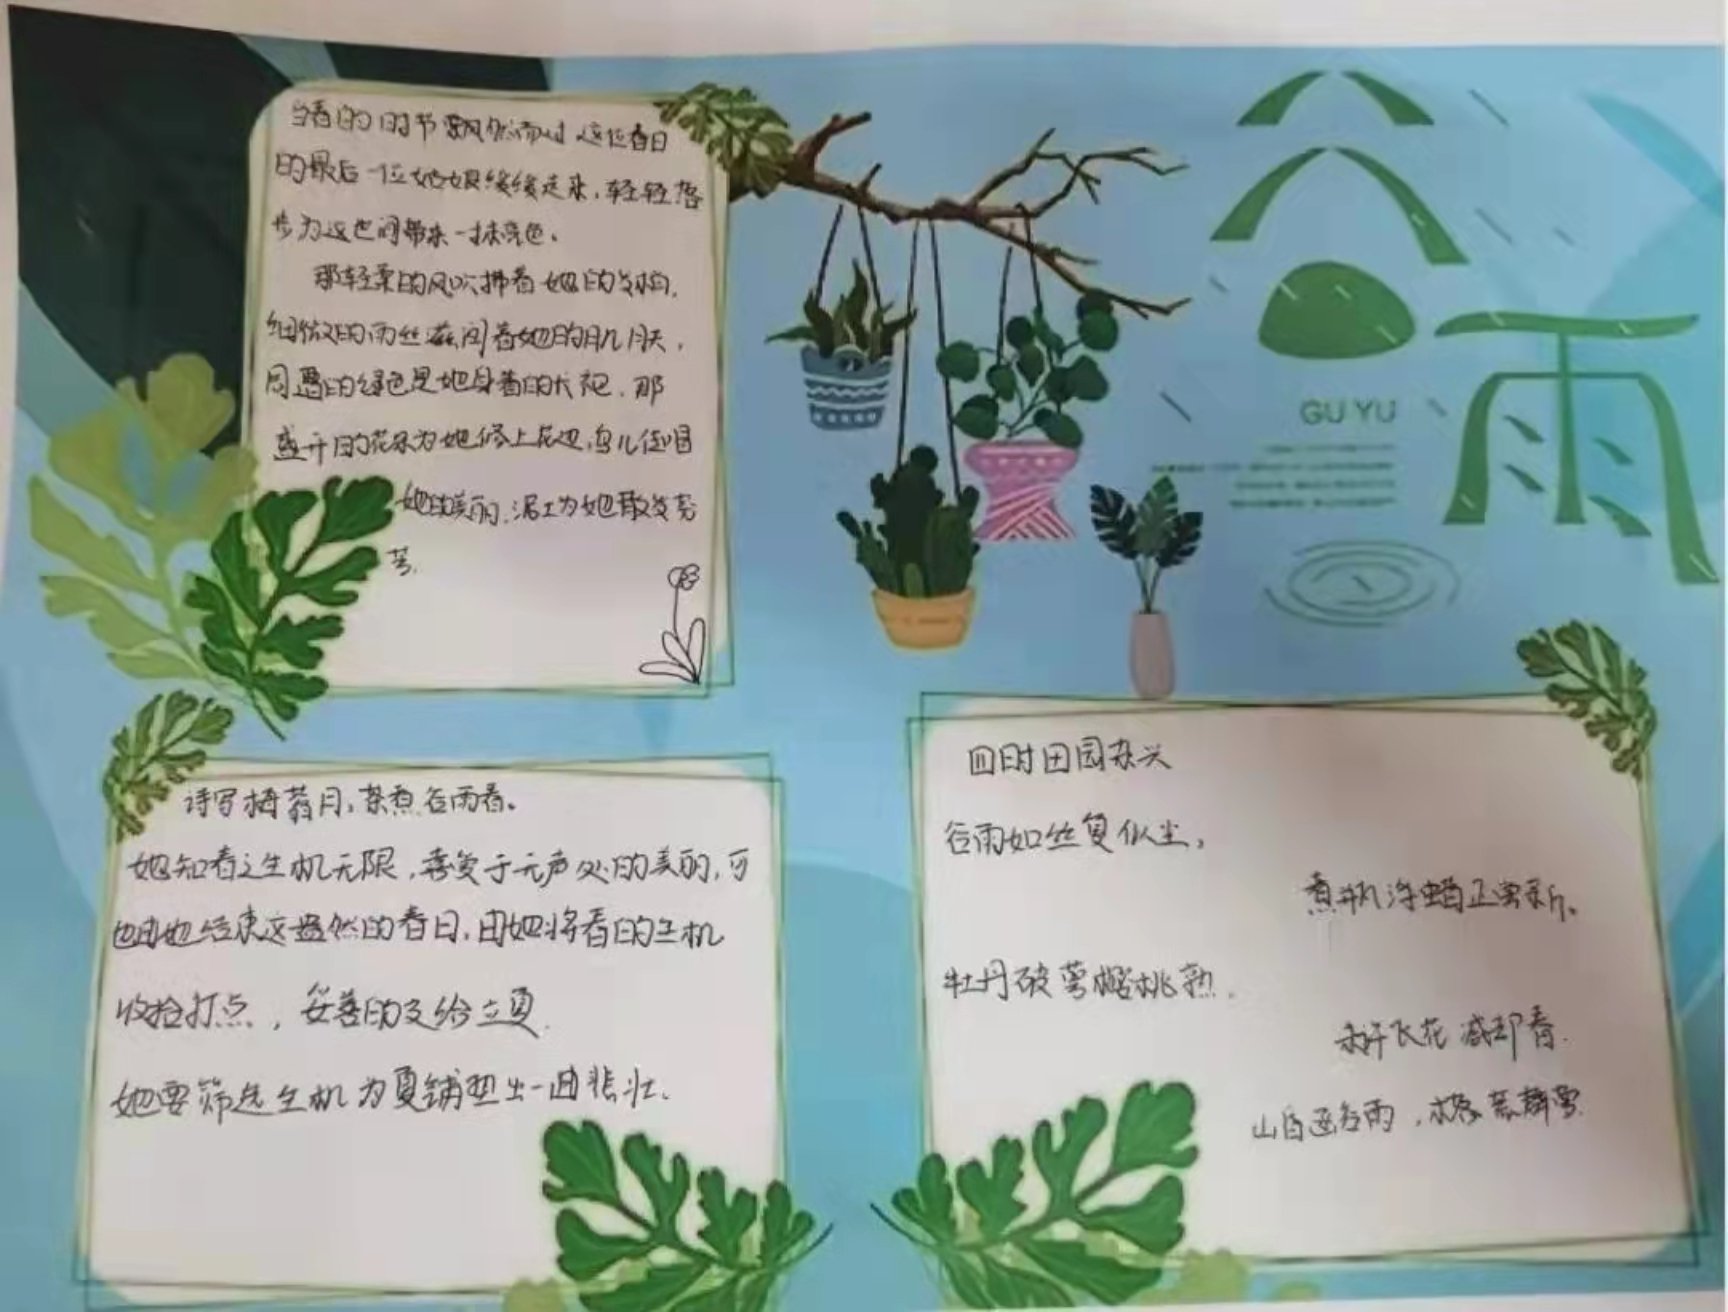 当春的时节飘然而过 这位春日
的最后一位姑娘缓缓走来,轻轻落
步为这世间带来一抹亮色。
那轻柔的风吹拂着她的发梢,
细微的雨丝滋润着她的肌肤,
周遭的绿色是她身着的长袍,那
盛开的花朵为她修上花边,鸟儿
她的美丽,泥土为她散发芬
芳.
谷雨
GU YU
诗写梅花月,茶煮谷雨春。
她知春之生机无限,喜爱于无声处的美丽,可
也由她结束这盎然的春日,由她将春的生机
收拾打点,妥善的交给立夏.
她要筛选生机为夏铺垫出一曲悲壮.
四时田园杂兴
谷雨如丝复似尘,
煮瓶浮蜡正尝新。
牡丹破萼樱桃熟.
未许飞花减却春.
谷雨